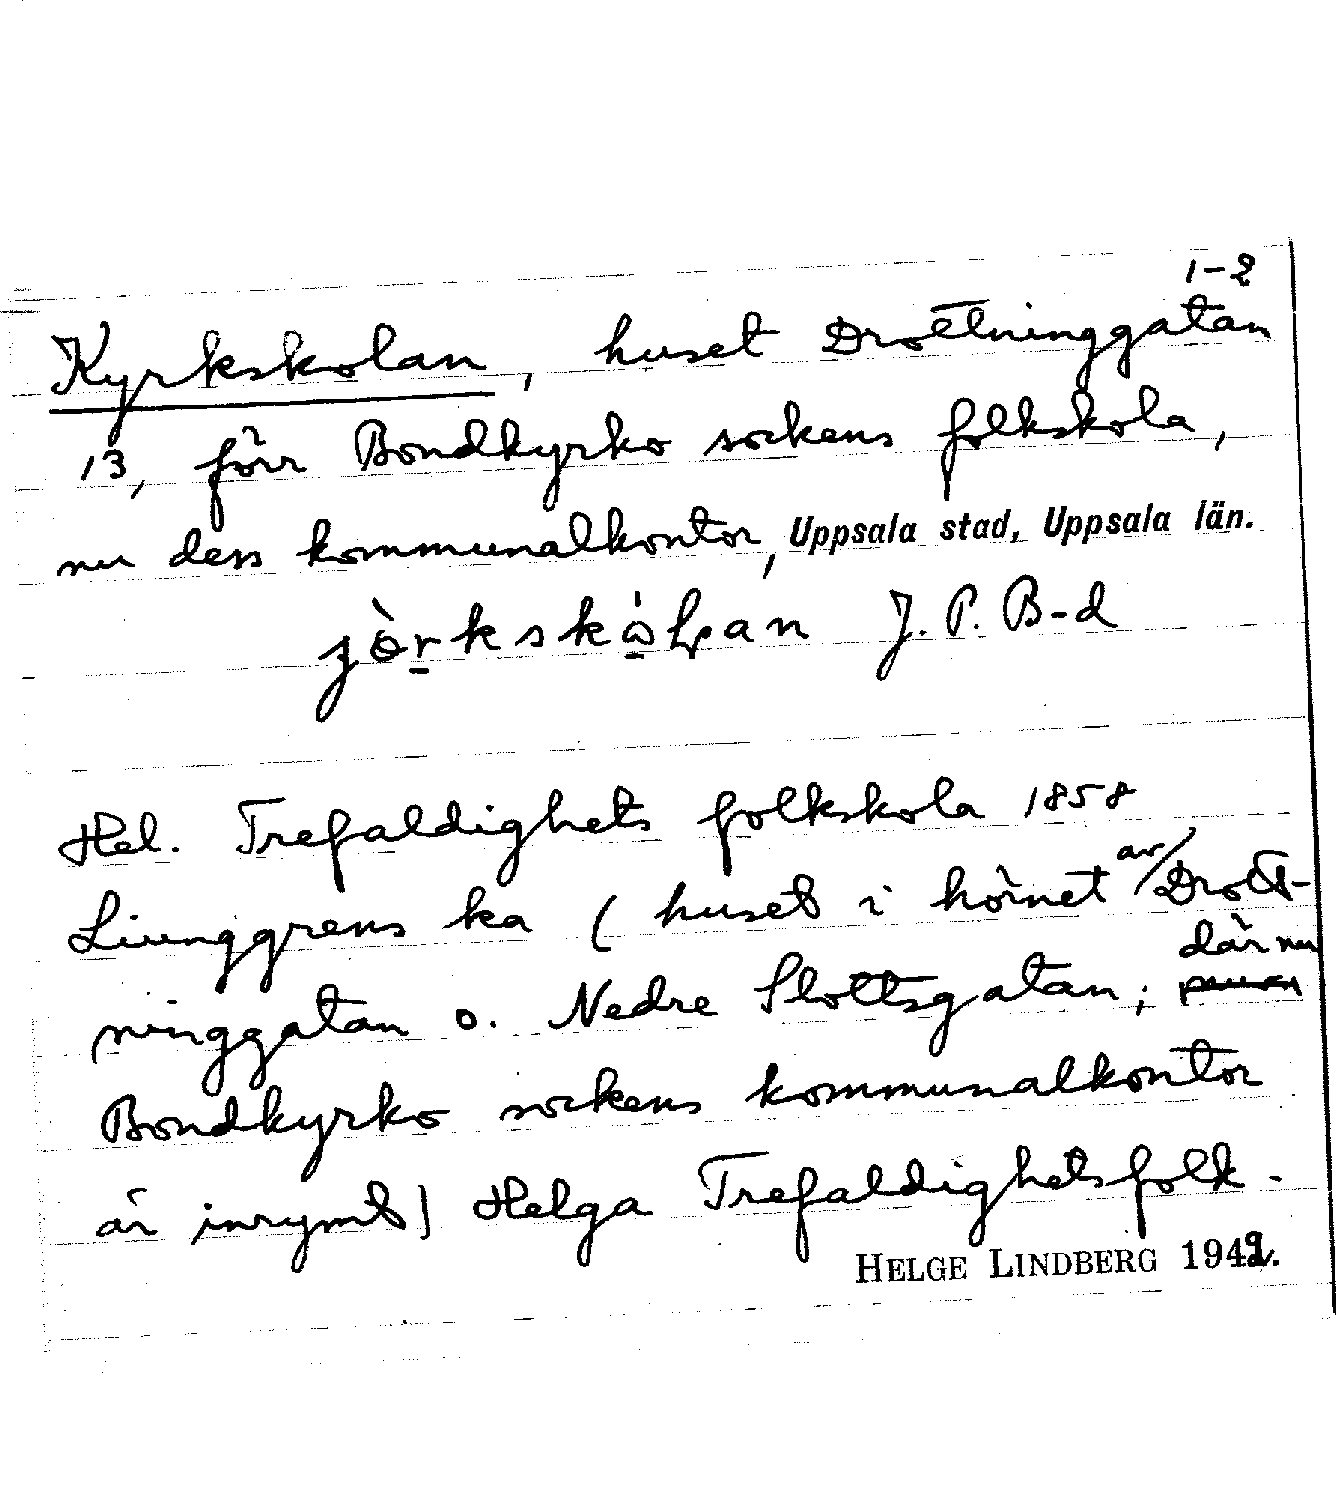 1-2
Kyrkskolan, huset Drottninggatan
13, förr Bondkyrko sockens folkskola,
nu dess kommunalkontor, Uppsala stad, Uppsala län.
J. P. B-d
Hel. Trefaldighets folkskola 1858
Liunggrens ka (huset i hörnet av Drott-
ninggatan o. Nedre Slottsgatan; där nu
Bondkyrko sockens kommunalkontor
är inrymt) Helga Trefaldighetsfolk-
HELGE LINDBERG 1942.